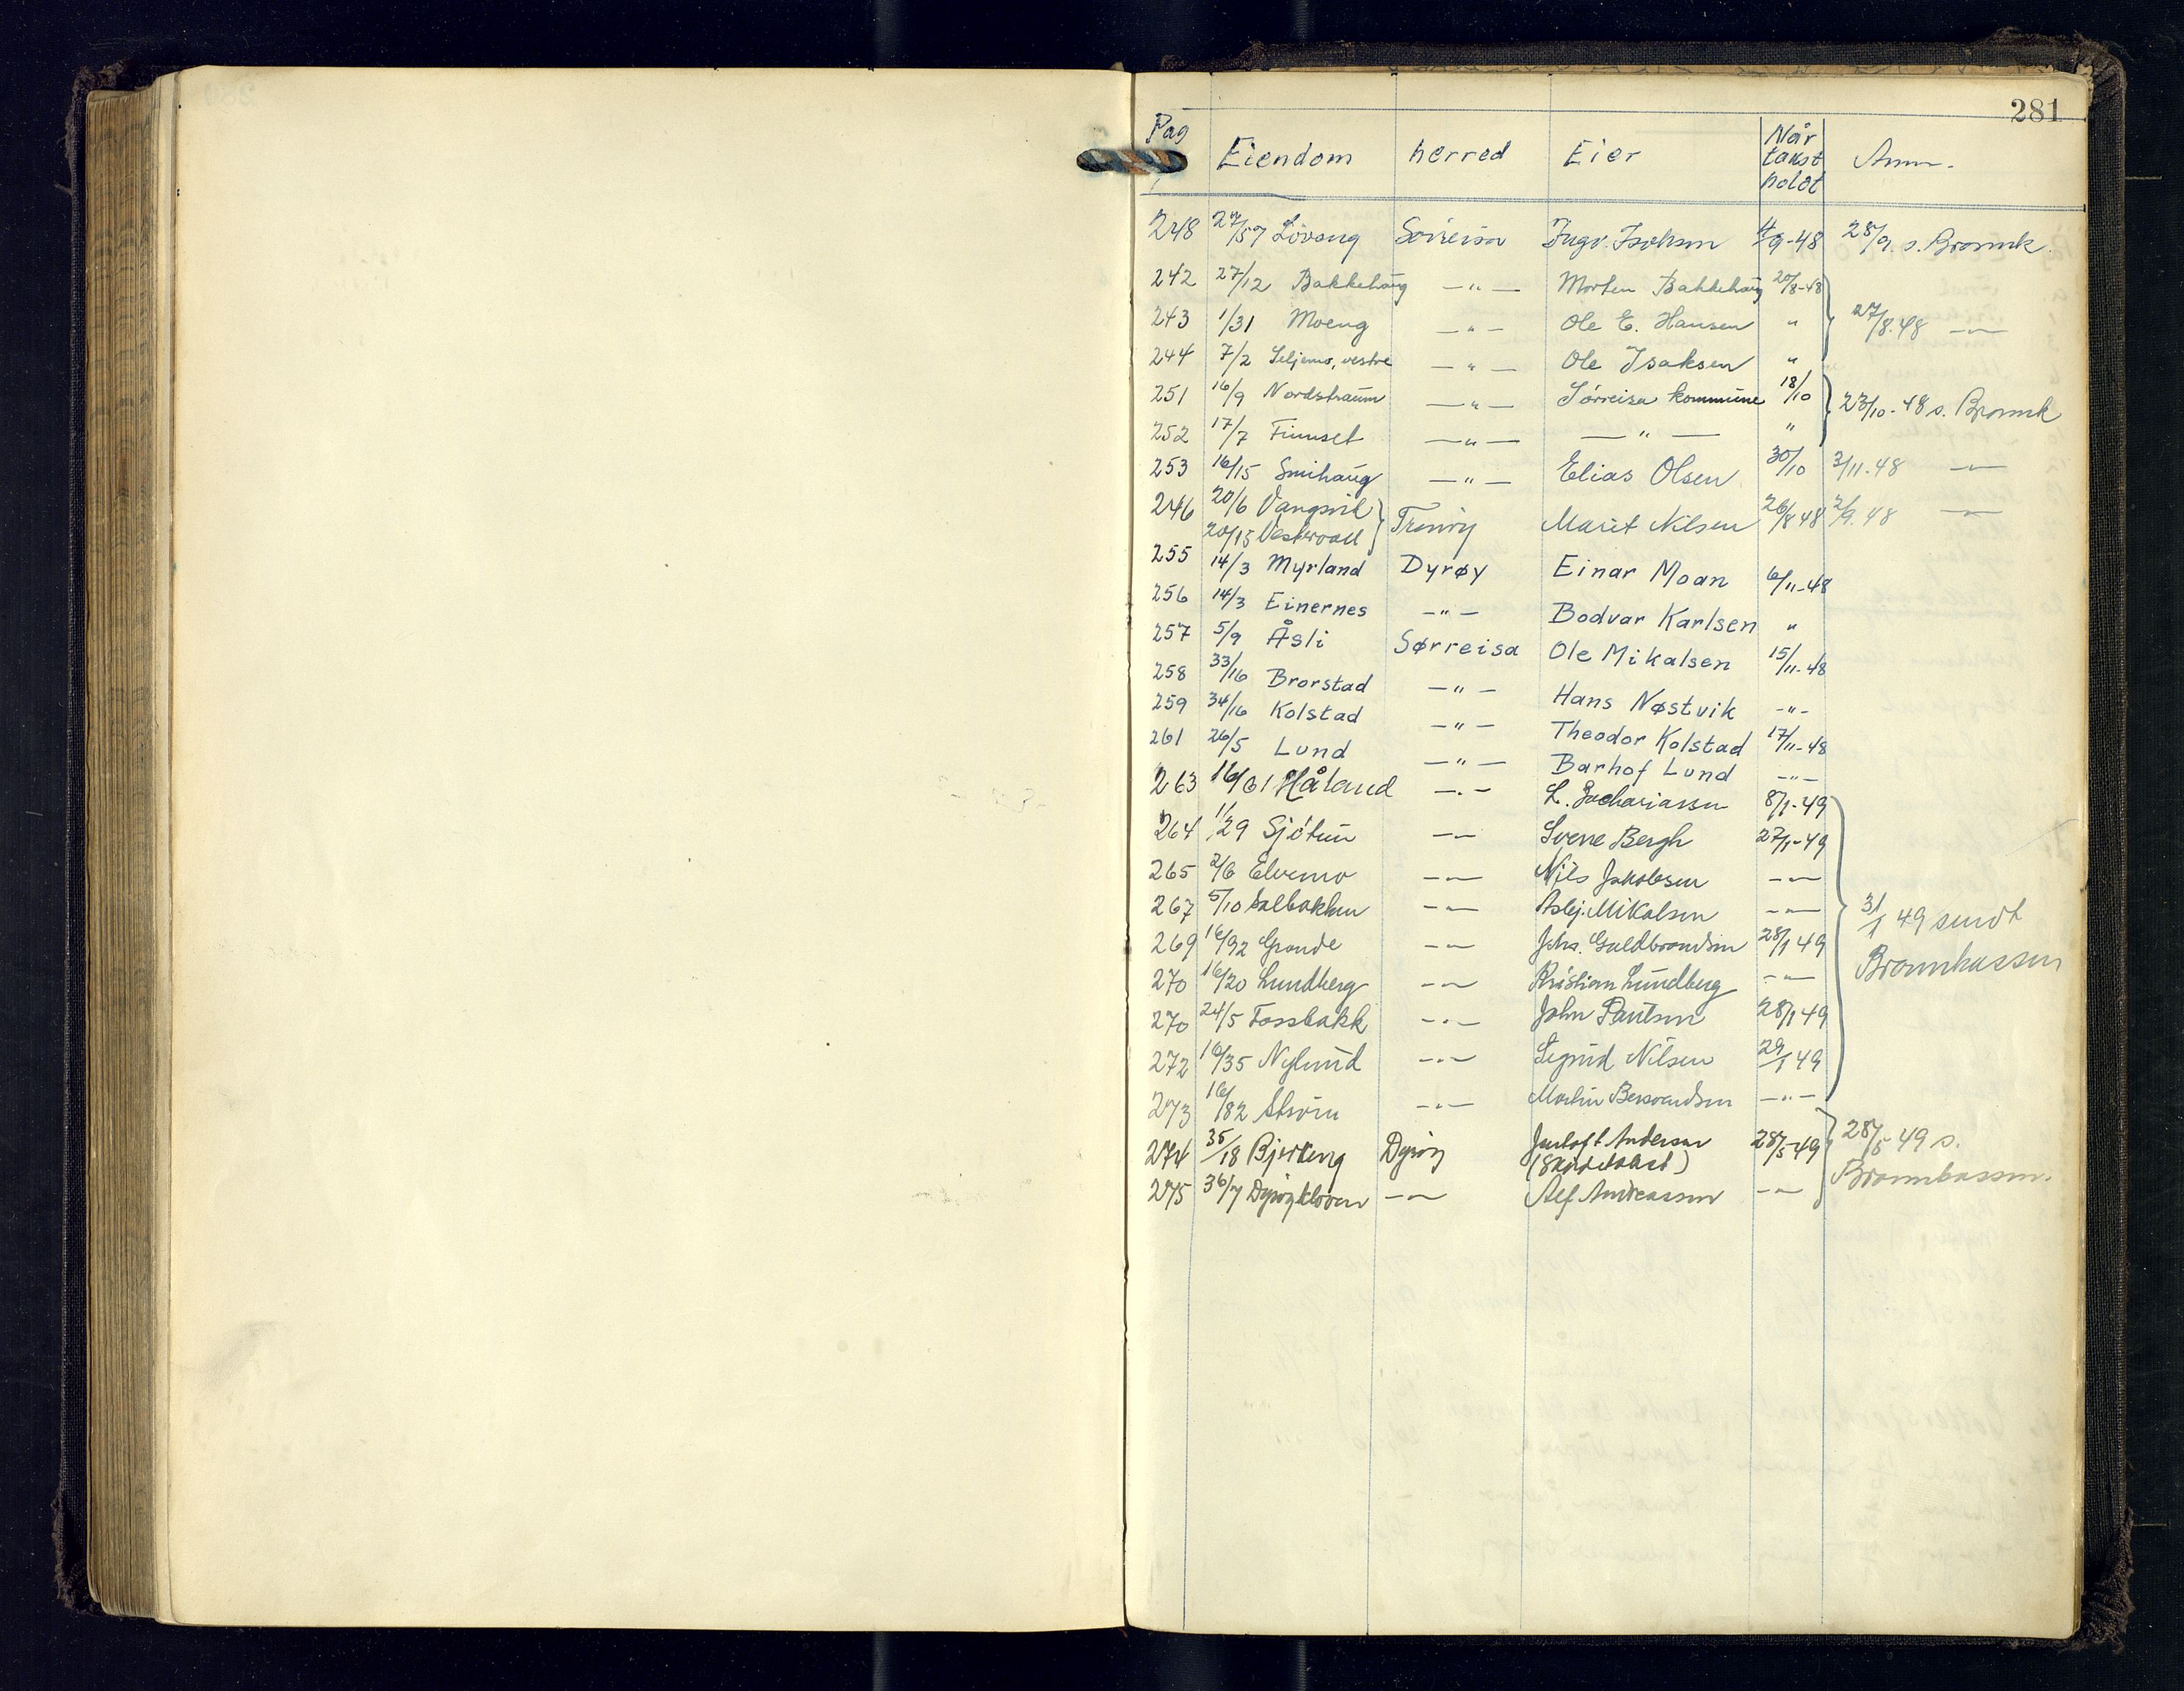 281
Pag Eiendom herred Eier Når takst holdt Anm.
248 27/57 Löveng Sörreisa Ingv. Isaksen 4/9-48 28/9 s. Brannk.
242 27/12 Bakkehaug —"— Morten Bakkehaug 20/8-48
243 1/31 Moeng —"— Ole E. Hansen " 27/8.48 —"—
244 7/2 Seljemo, vestre —"— Ole Isaksen "
251 16/9 Nordstraum —"— Sörreisa kommune 18/10 23/10-48 s. Brannk
252 17/7 Finnset —"— —"— "
253 16/15 Smihaug —"— Elias Olsen 30/10 3/11-48 —"—
246 20/6 Vangsvik Tranöy Marit Nilsen 26/8 48 2/9.48 —"—
20/15 Vestervoll
255 14/3 Myrland Dyrøy Einar Moan 6/11-48
256 14/3 Einernes —"— Bodvar Karlsen "
257 5/9 Åsli Sørreisa Ole Mikalsen 15/11-48
258 33/16 Brorstad —"— Hans Nøstvik —"—
259 34/16 Kolstad —"— Theodor Kolstad 17/11-48
261 26/5 Lund —"— Barhof Lund —"—
263 16/61 Håland —"— L. Zachariassen 8/1-49
264 11/29 Sjötun —"— Sverre Bergh 27/1-49
265 2/6 Elvemo —"— Nils Jakobsen —"—
267 5/10 Solbakken —"— Asbj. Mikalsen —"—
31/1 49 sendt
269 16/92 Grande —"— Johs. Guldbrandsen 28/1 49
Brannkassen
270 16/20 Lundberg —"— Kristian Lundberg —"—
270 24/5 Fossbakk —"— John Paulsen 28/1 49
272 16/35 Nylund —"— Sigrid Nilsen 29/1 49
273 16/82 Ström —"— Martin Bersvendsen —"—
274 35/18 Bjerkeng Dyröy Andersen 28/5-49 28/5 49 s.
(Skjødetakst) Brannkassen.
275 36/7 Dyröykloven —"— Alf Andreassen —"—